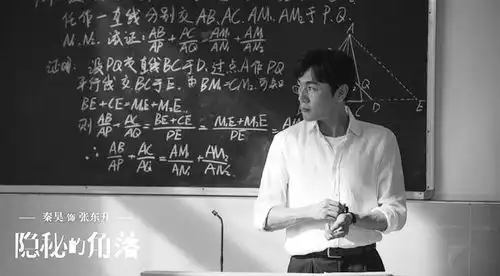 任作一直线分别交AB、AC、AM₁、AM₂于P、Q、
N₁、N₂. 试证: AB/AP + AC/AQ = AM₁/AN₁ + AM₂/AN₂
证明: 设PQ交直线BC于D, 过点A作PQ
平行线交BC于E. 由BM₁=CM₂, 可知
BE+CE=M₁E+M₂E,
则 AB/AP + AC/AQ = (BE+CE)/DE = (M₁E+M₂E)/DE =
∴ AB/AP + AC/AQ = AM₁/AN₁ + AM₂/AN₂
Q
C
D
E
秦昊 饰 张东升
隐秘的角落